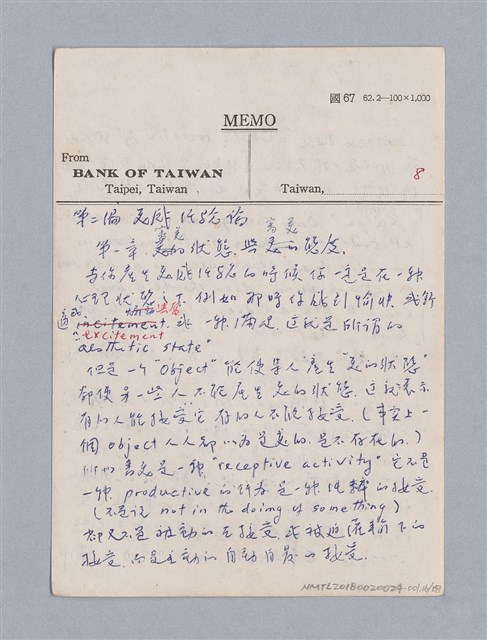 國 67 62.2—100×1,000
MEMO
From
BANK OF TAIWAN
Taipei, Taiwan
Taiwan,
8
第二編 美感經驗論
審美 審美
第一章 美的狀態與美的態度
當你產生美感經驗的時候你一定是在一種
心理狀態之下 例如那時你感到愉快 或新
或
incitement 或一種滿足 這就是所謂的
excitement
aesthetic state"
但是一個 "object" 能使某人"產生"美的狀態"
卻使另一些人不能產生美的狀態 這就表示
有的人能接受它 有的人不能接受 (事實上一
個 object 人人都以為是美的 是不存在的)
所以審美是一種 "receptive activity" 它不是
一種 productive 的行為 是一種純粹的接受
(不是說 not in the doing of something)
卻又不是被動的在接受 或被迫灌輸下的
接受 而是主動的自動自發的接受
NMTL20180020024-001.16/19